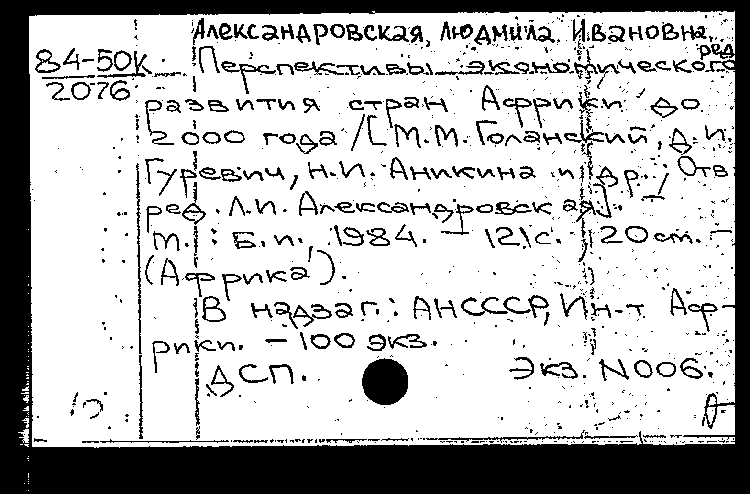 Александровская, Людмила Ивановна,
ред.
84-50к Перспективы экономического
2076
развития стран Африки до
2000 года /[М.М. Голанский, Д.И.
Гуревич, Н.И. Аникина и др.; Отв.
ред. Л.И. Александровская].
М.: Б.и., 1984. - 121с. ; 20см. -
(Африка).
В надзаг.: АН СССР, Ин-т Аф-
рики. - 100 экз.
ДСП. Экз. N006.